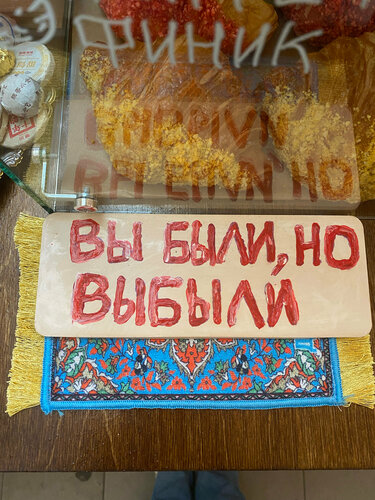 ФИНИК
ВЫ БЫЛИ, НО
ВЫБЫЛИ